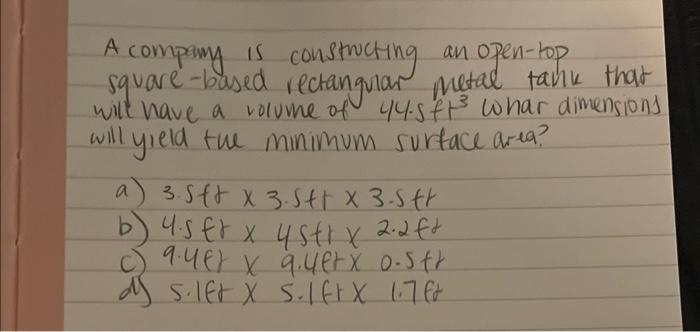 A company is constructing an open-top
square-based rectangular metal tank that
will have a volume of 44.5 ft³ what dimensions
will yield the minimum surface area?
a) 3.5ft x 3.5ft x 3.5ft
b) 4.5 ft x 4.5ft x 2.2ft
c) 9.4ft x 9.4ft x 0.5ft
d) 5.1ft x 5.1ft x 1.7ft